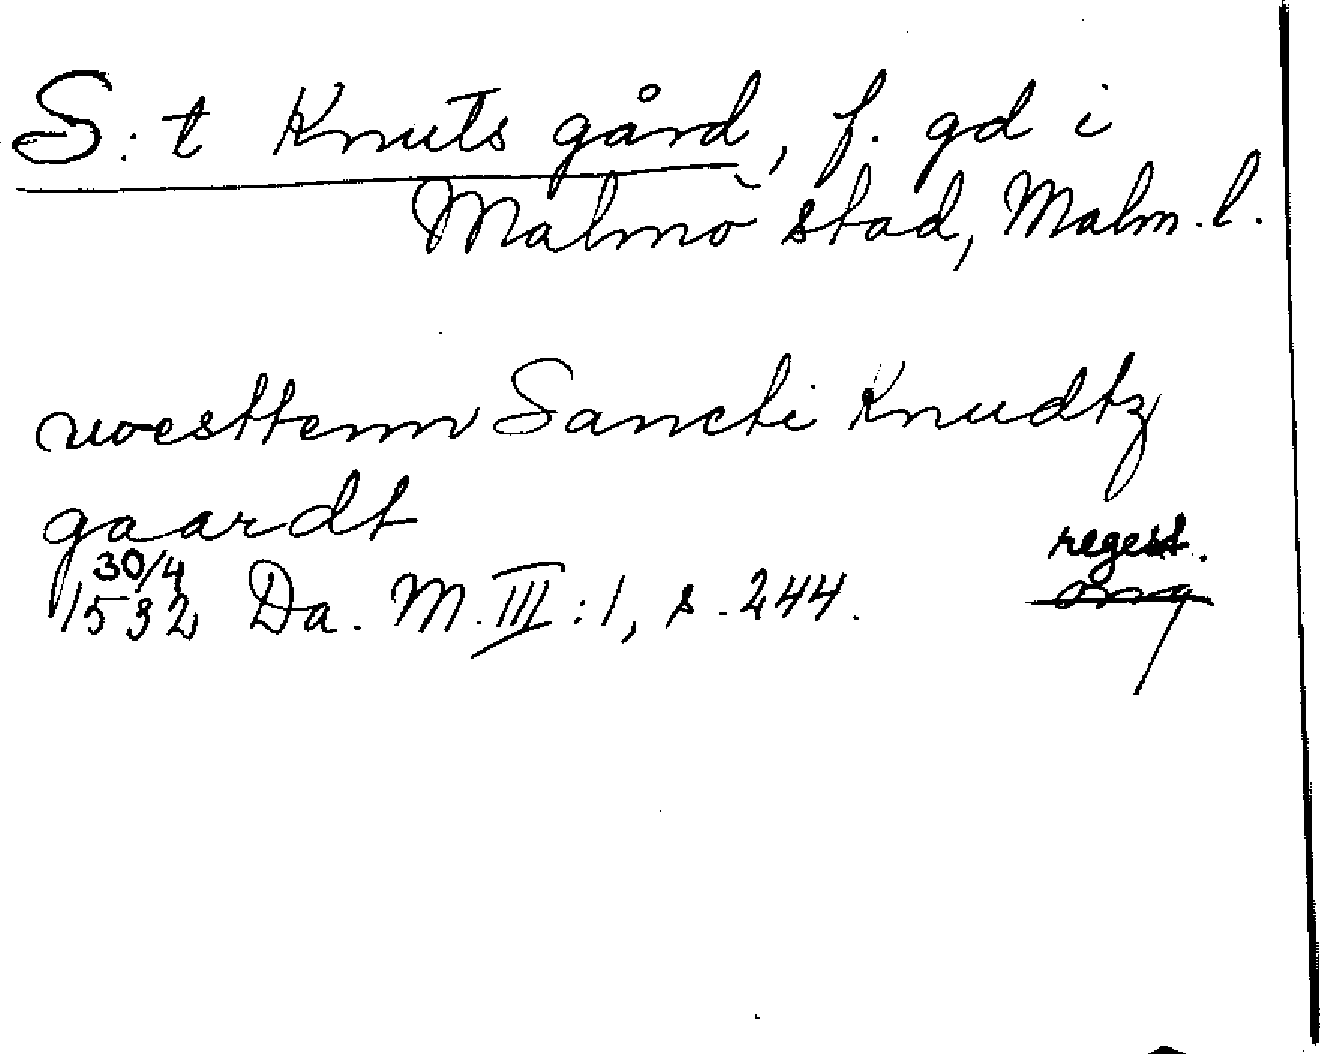 S:t Knuts gård, f. gd i
Malmö stad, Malm. l.
woesttenn Sancti Knudtz
gaardt
regest.
30/4
1532 Da. M. III:1, s. 244.